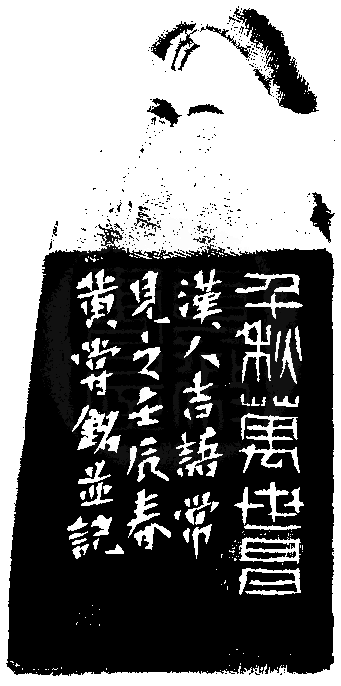 千秋萬世昌
漢人吉語常
見之壬辰春
黃嘗銘並記